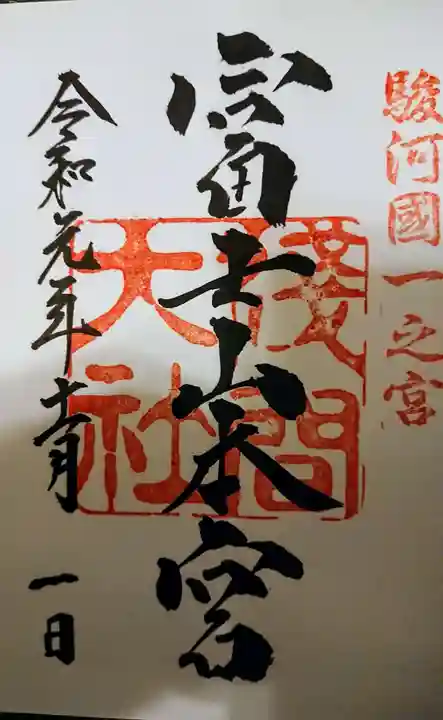 駿河國一之宮
富士山本宮
淺間大社
令和元年十一月一日